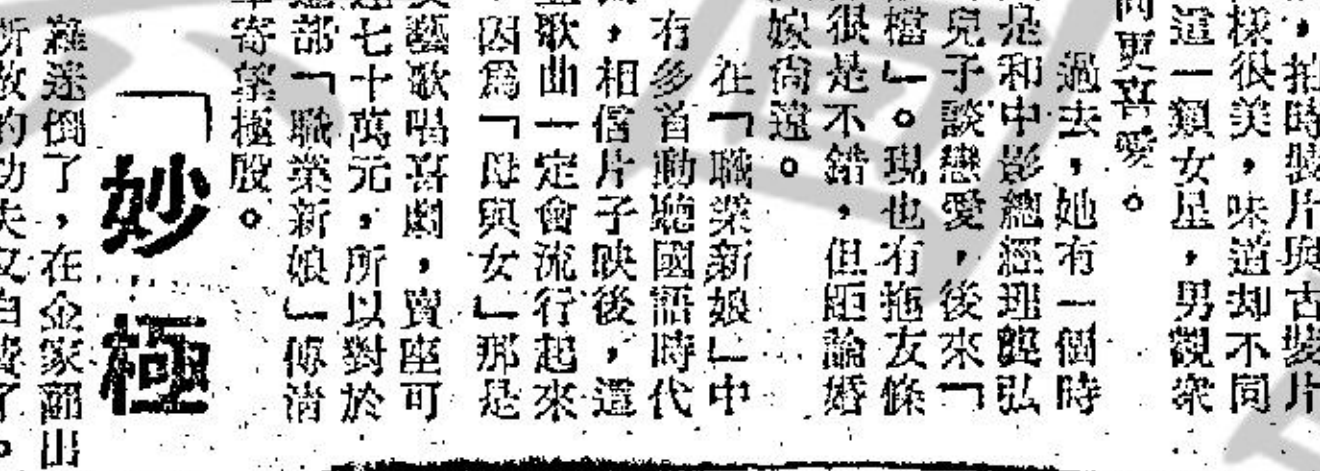 ，拍時裝片與古裝片
樣很美，味道却不同
這一類女星，男觀衆
更喜愛。
過去，她有一個時
是和中影總經理龔弘
兒子談戀愛，後來「
檔」。現也有拖友條
很是不錯，但距論婚
嫁尙遠。
在「職業新娘」中
有多首動聽國語時代
，相信片子映後，還
歌曲一定會流行起來
因爲「母與女」那是
藝歌唱喜劇，賣座可
七十萬元，所以對於
部「職業新娘」傅清
寄望極殷。
「妙極
迷倒了，在金家翻出
的功夫又白費了。